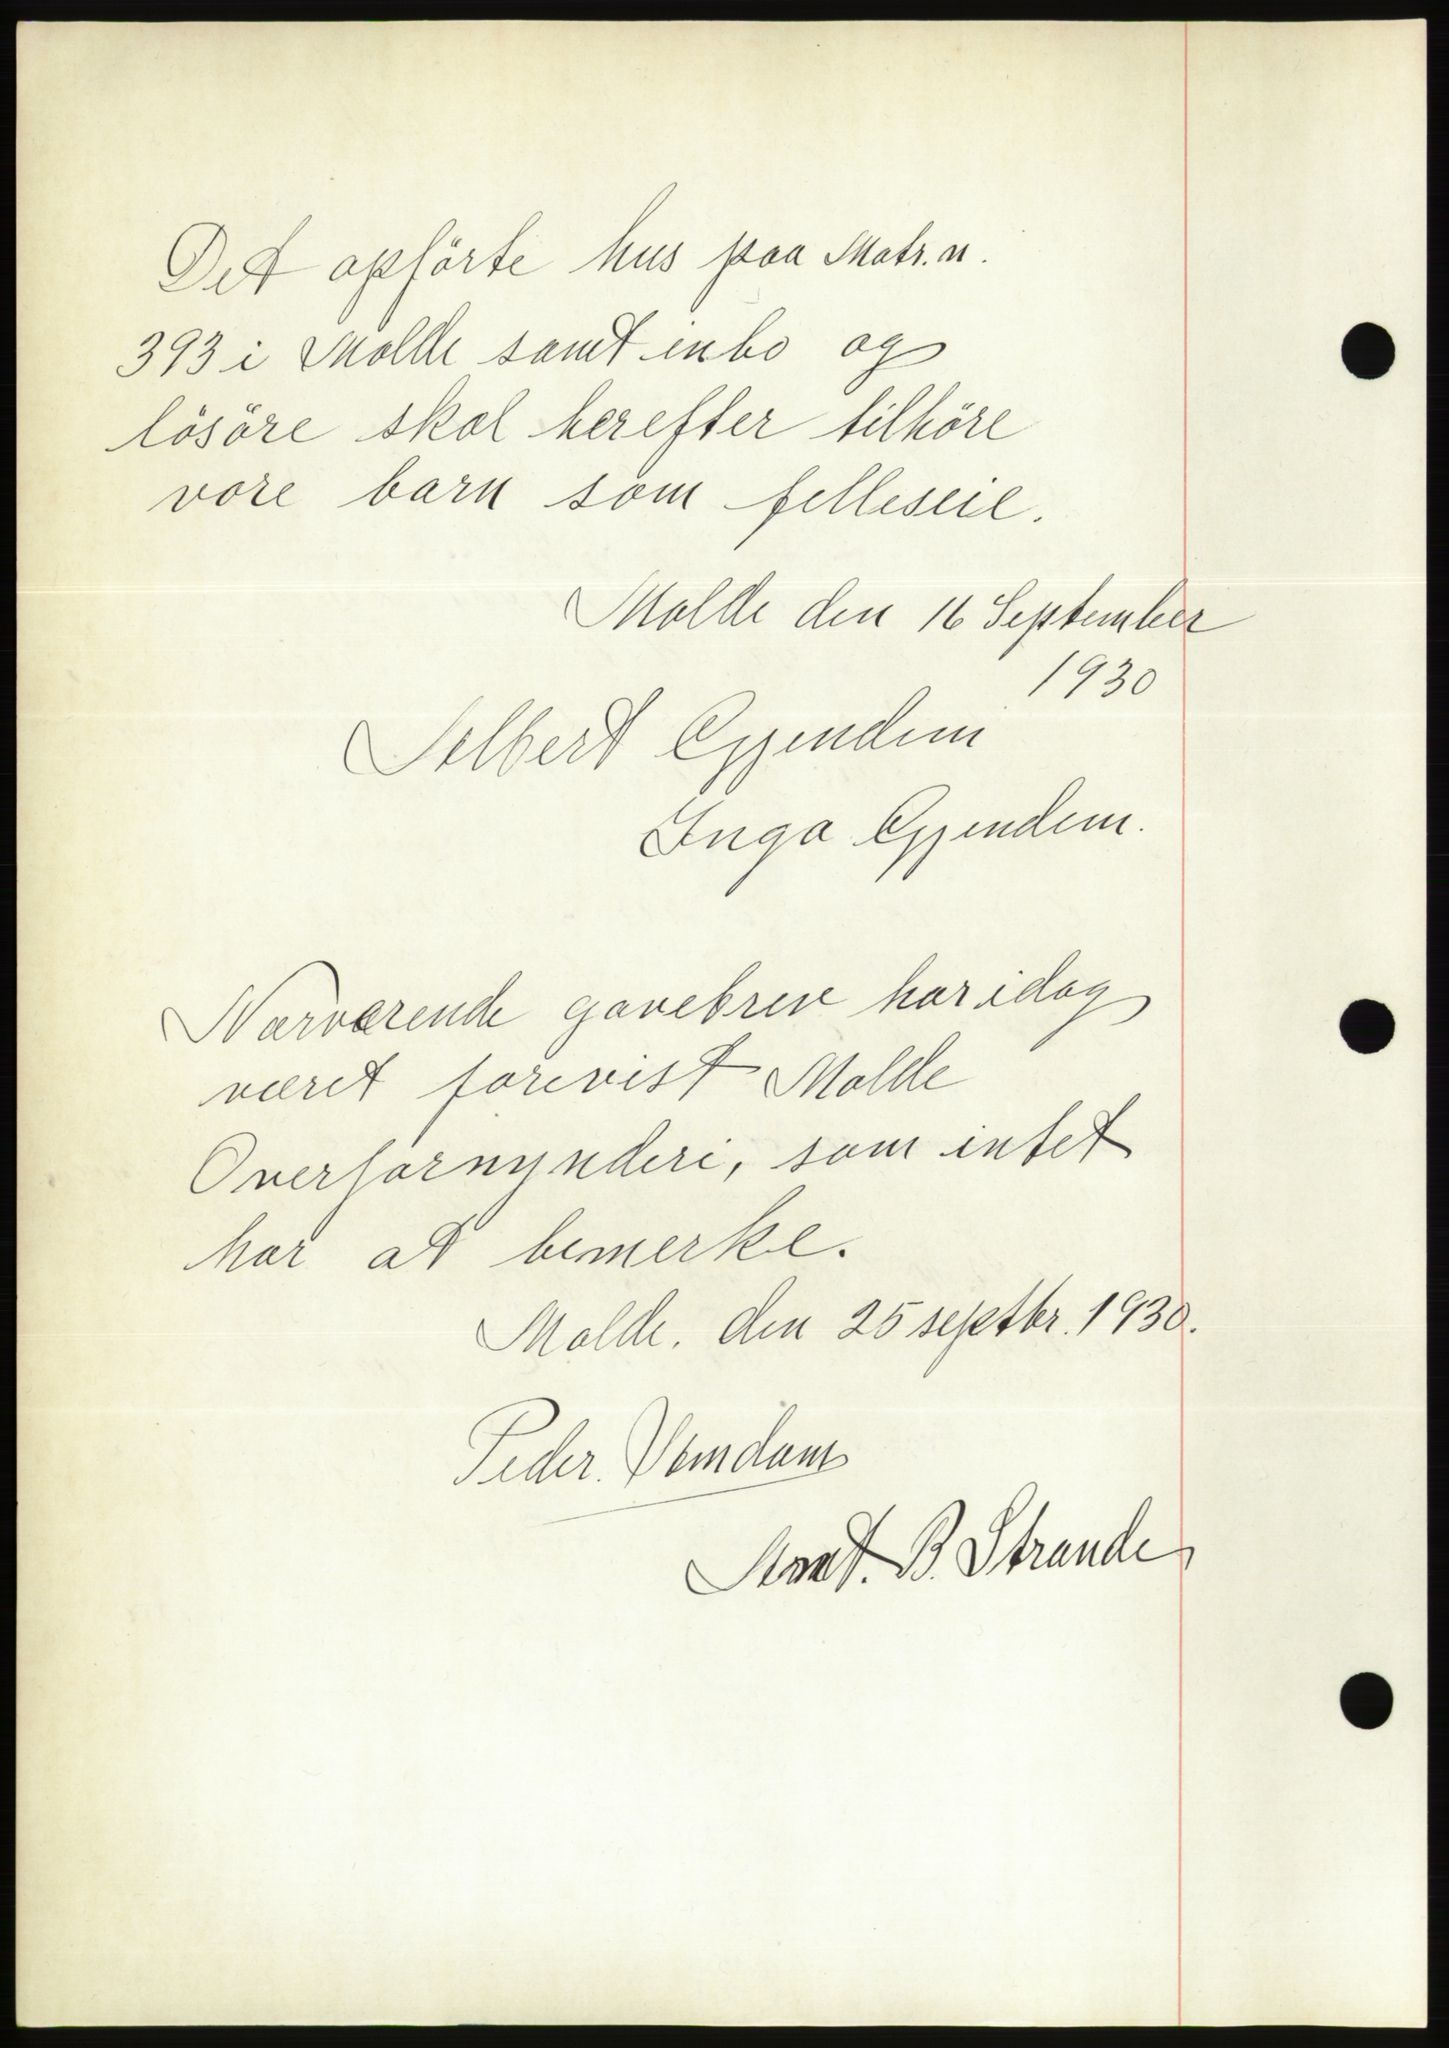 Det opförte hus paa Matr. n.
393 i Molde samt inbo og
lösöre skal herefter tilhöre
vore barn som felleseie.
Molde den 16 September
1930
Albert Gjendem
Inga Gjendem.
Nærværende gavebrev har idag
været forevist Molde
Overformynderi, som intet
har at bemerke.
Molde. den 25 septbr. 1930.
Peder
B. Strande